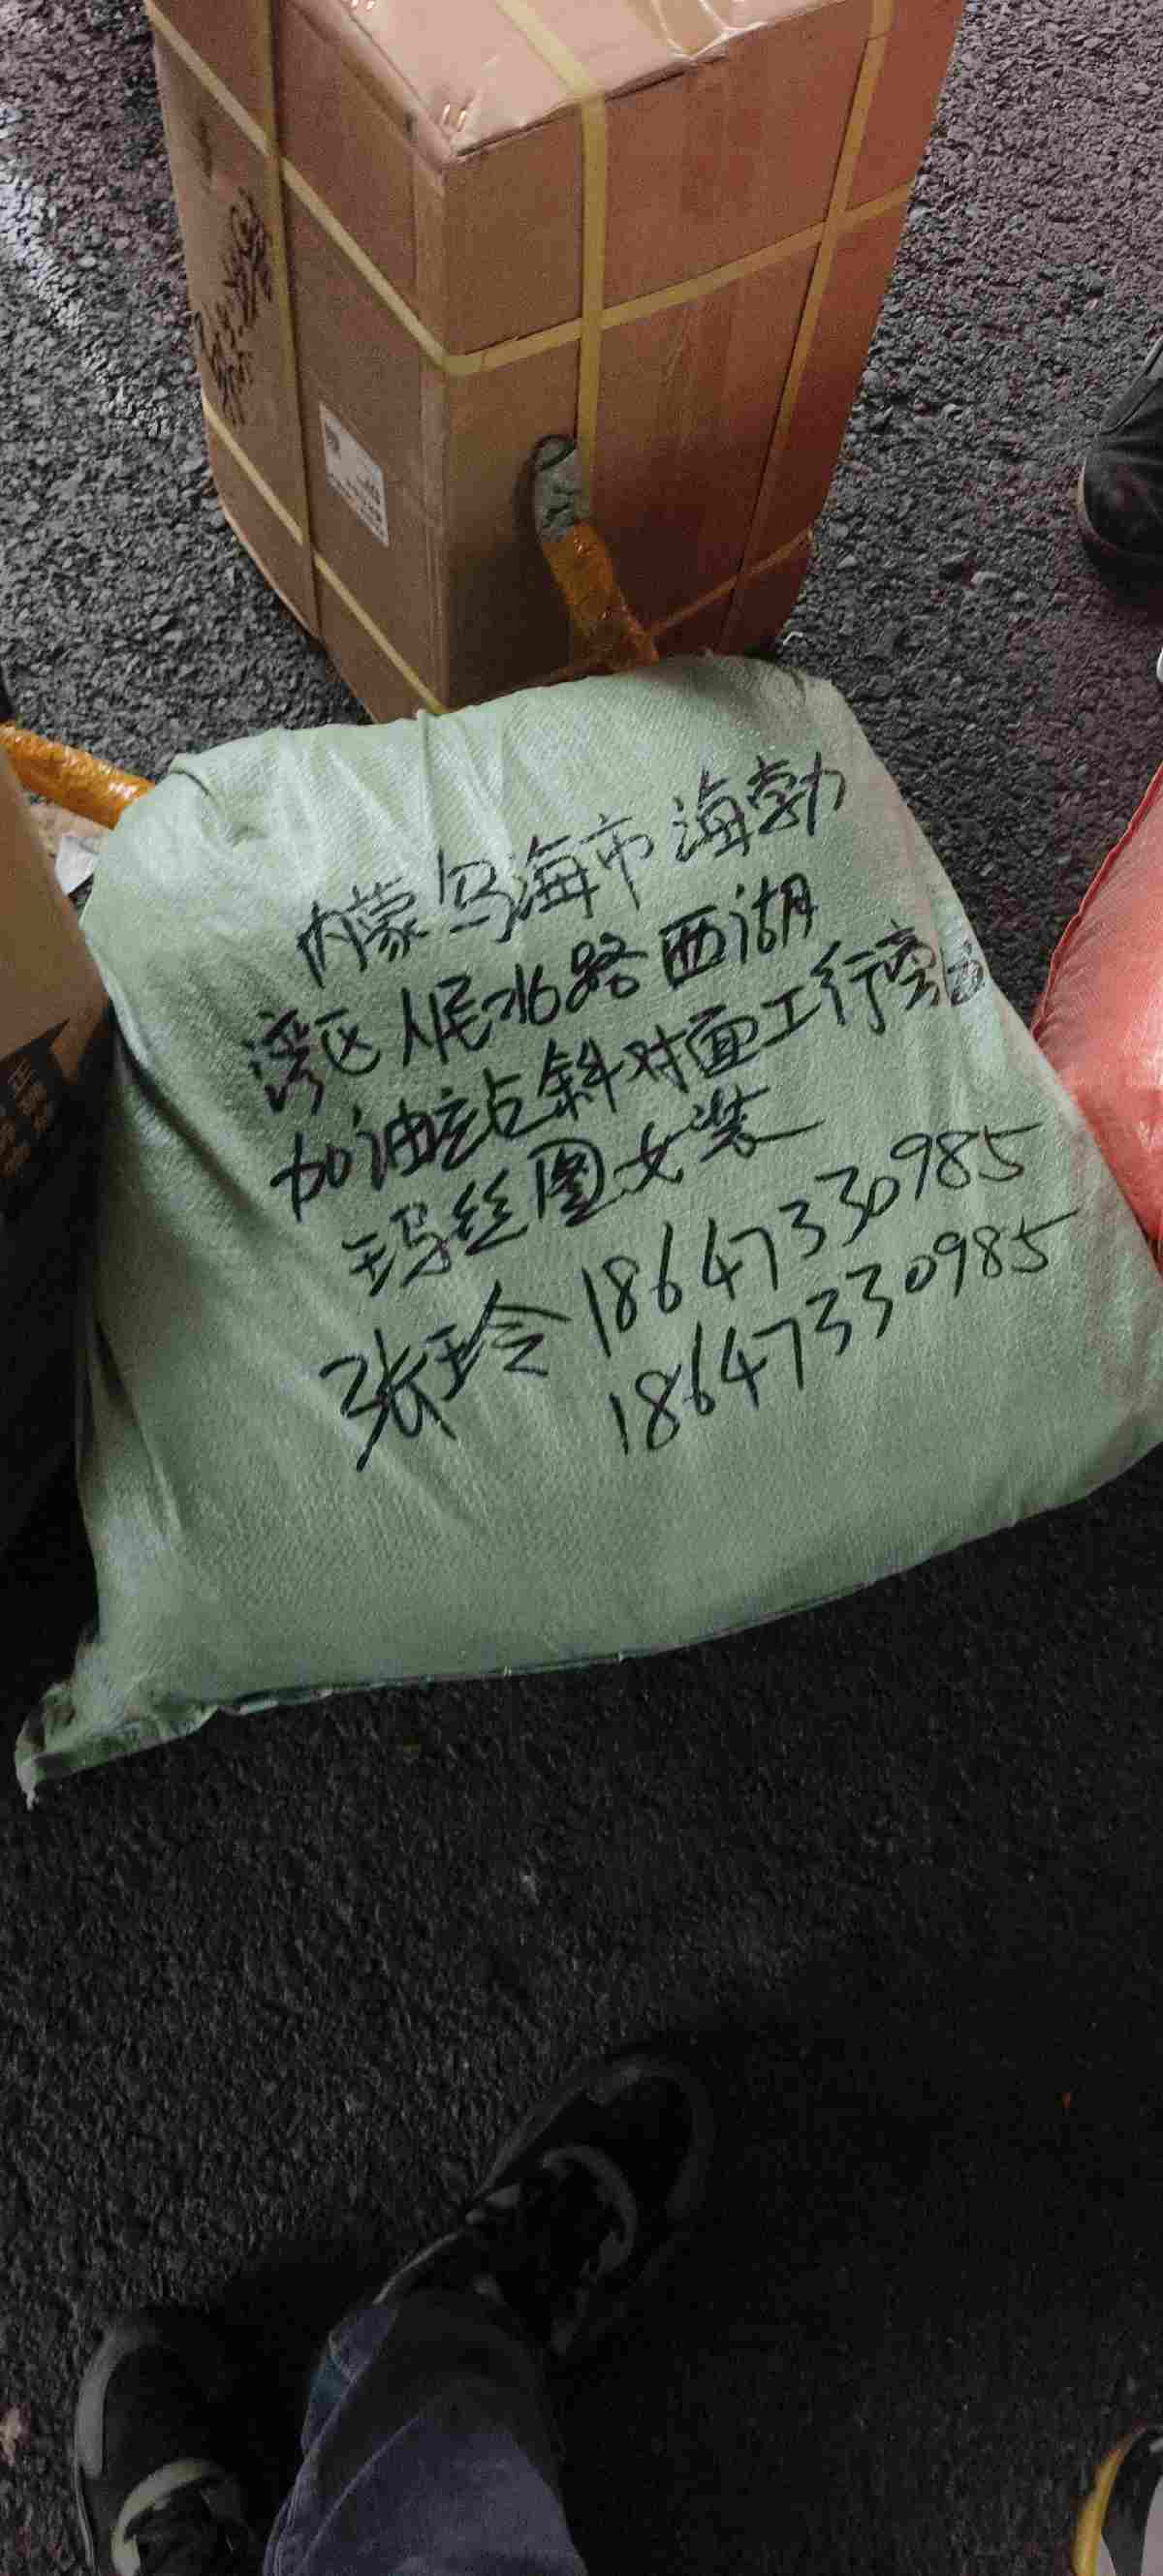 内蒙乌海市海勃
湾区人民北路西湖
加油站斜对面工行旁边
玛丝图女装
张玲18647330985
18647330985